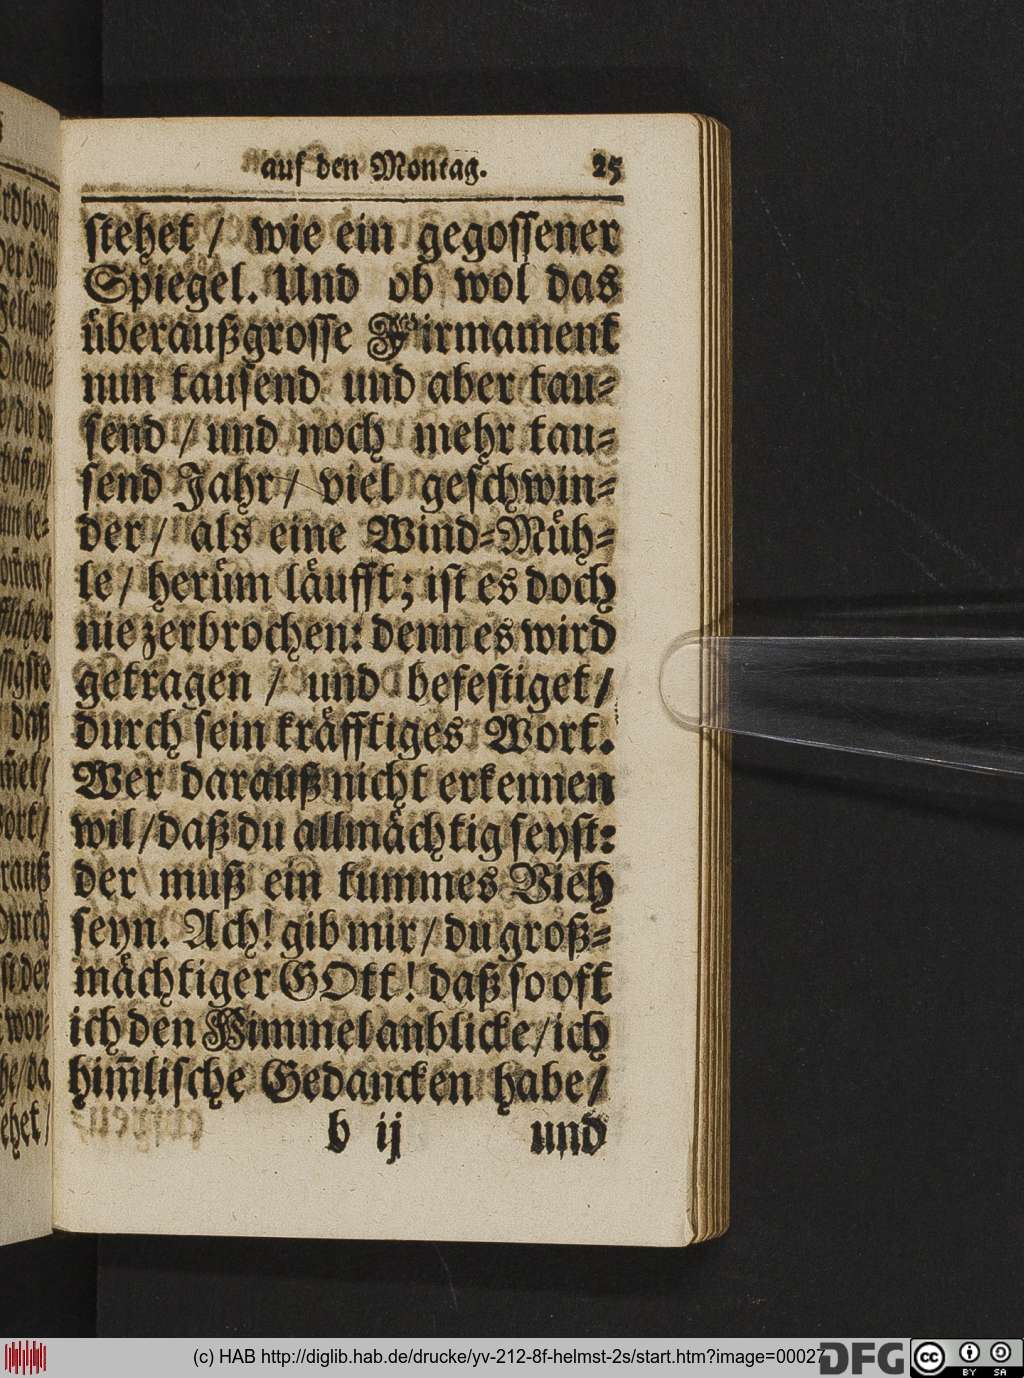 auf den Montag. 25
stehet / wie ein gegossener
Spiegel. Und ob wol das
überaußgrosse Firmament
nun tausend und aber tau-
send / und noch mehr tau-
send Jahr / viel geschwin-
der / als eine Wind-Müh-
le / herüm läufft; ist es doch
nie zerbrochen: denn es wird
getragen / und befestiget /
durch sein kräfftiges Wort.
Wer darauß nicht erkennen
wil / daß du allmächtig seyst:
der muß ein tummes Vieh
seyn. Ach! gib mir / du groß-
mächtiger GOtt! daß so oft
ich den Himmel anblicke / ich
him̃lische Gedancken habe /
b ij und
(c) HAB http://diglib.hab.de/drucke/yv-212-8f-helmst-2s/start.htm?image=00027
DFG cc BY SA